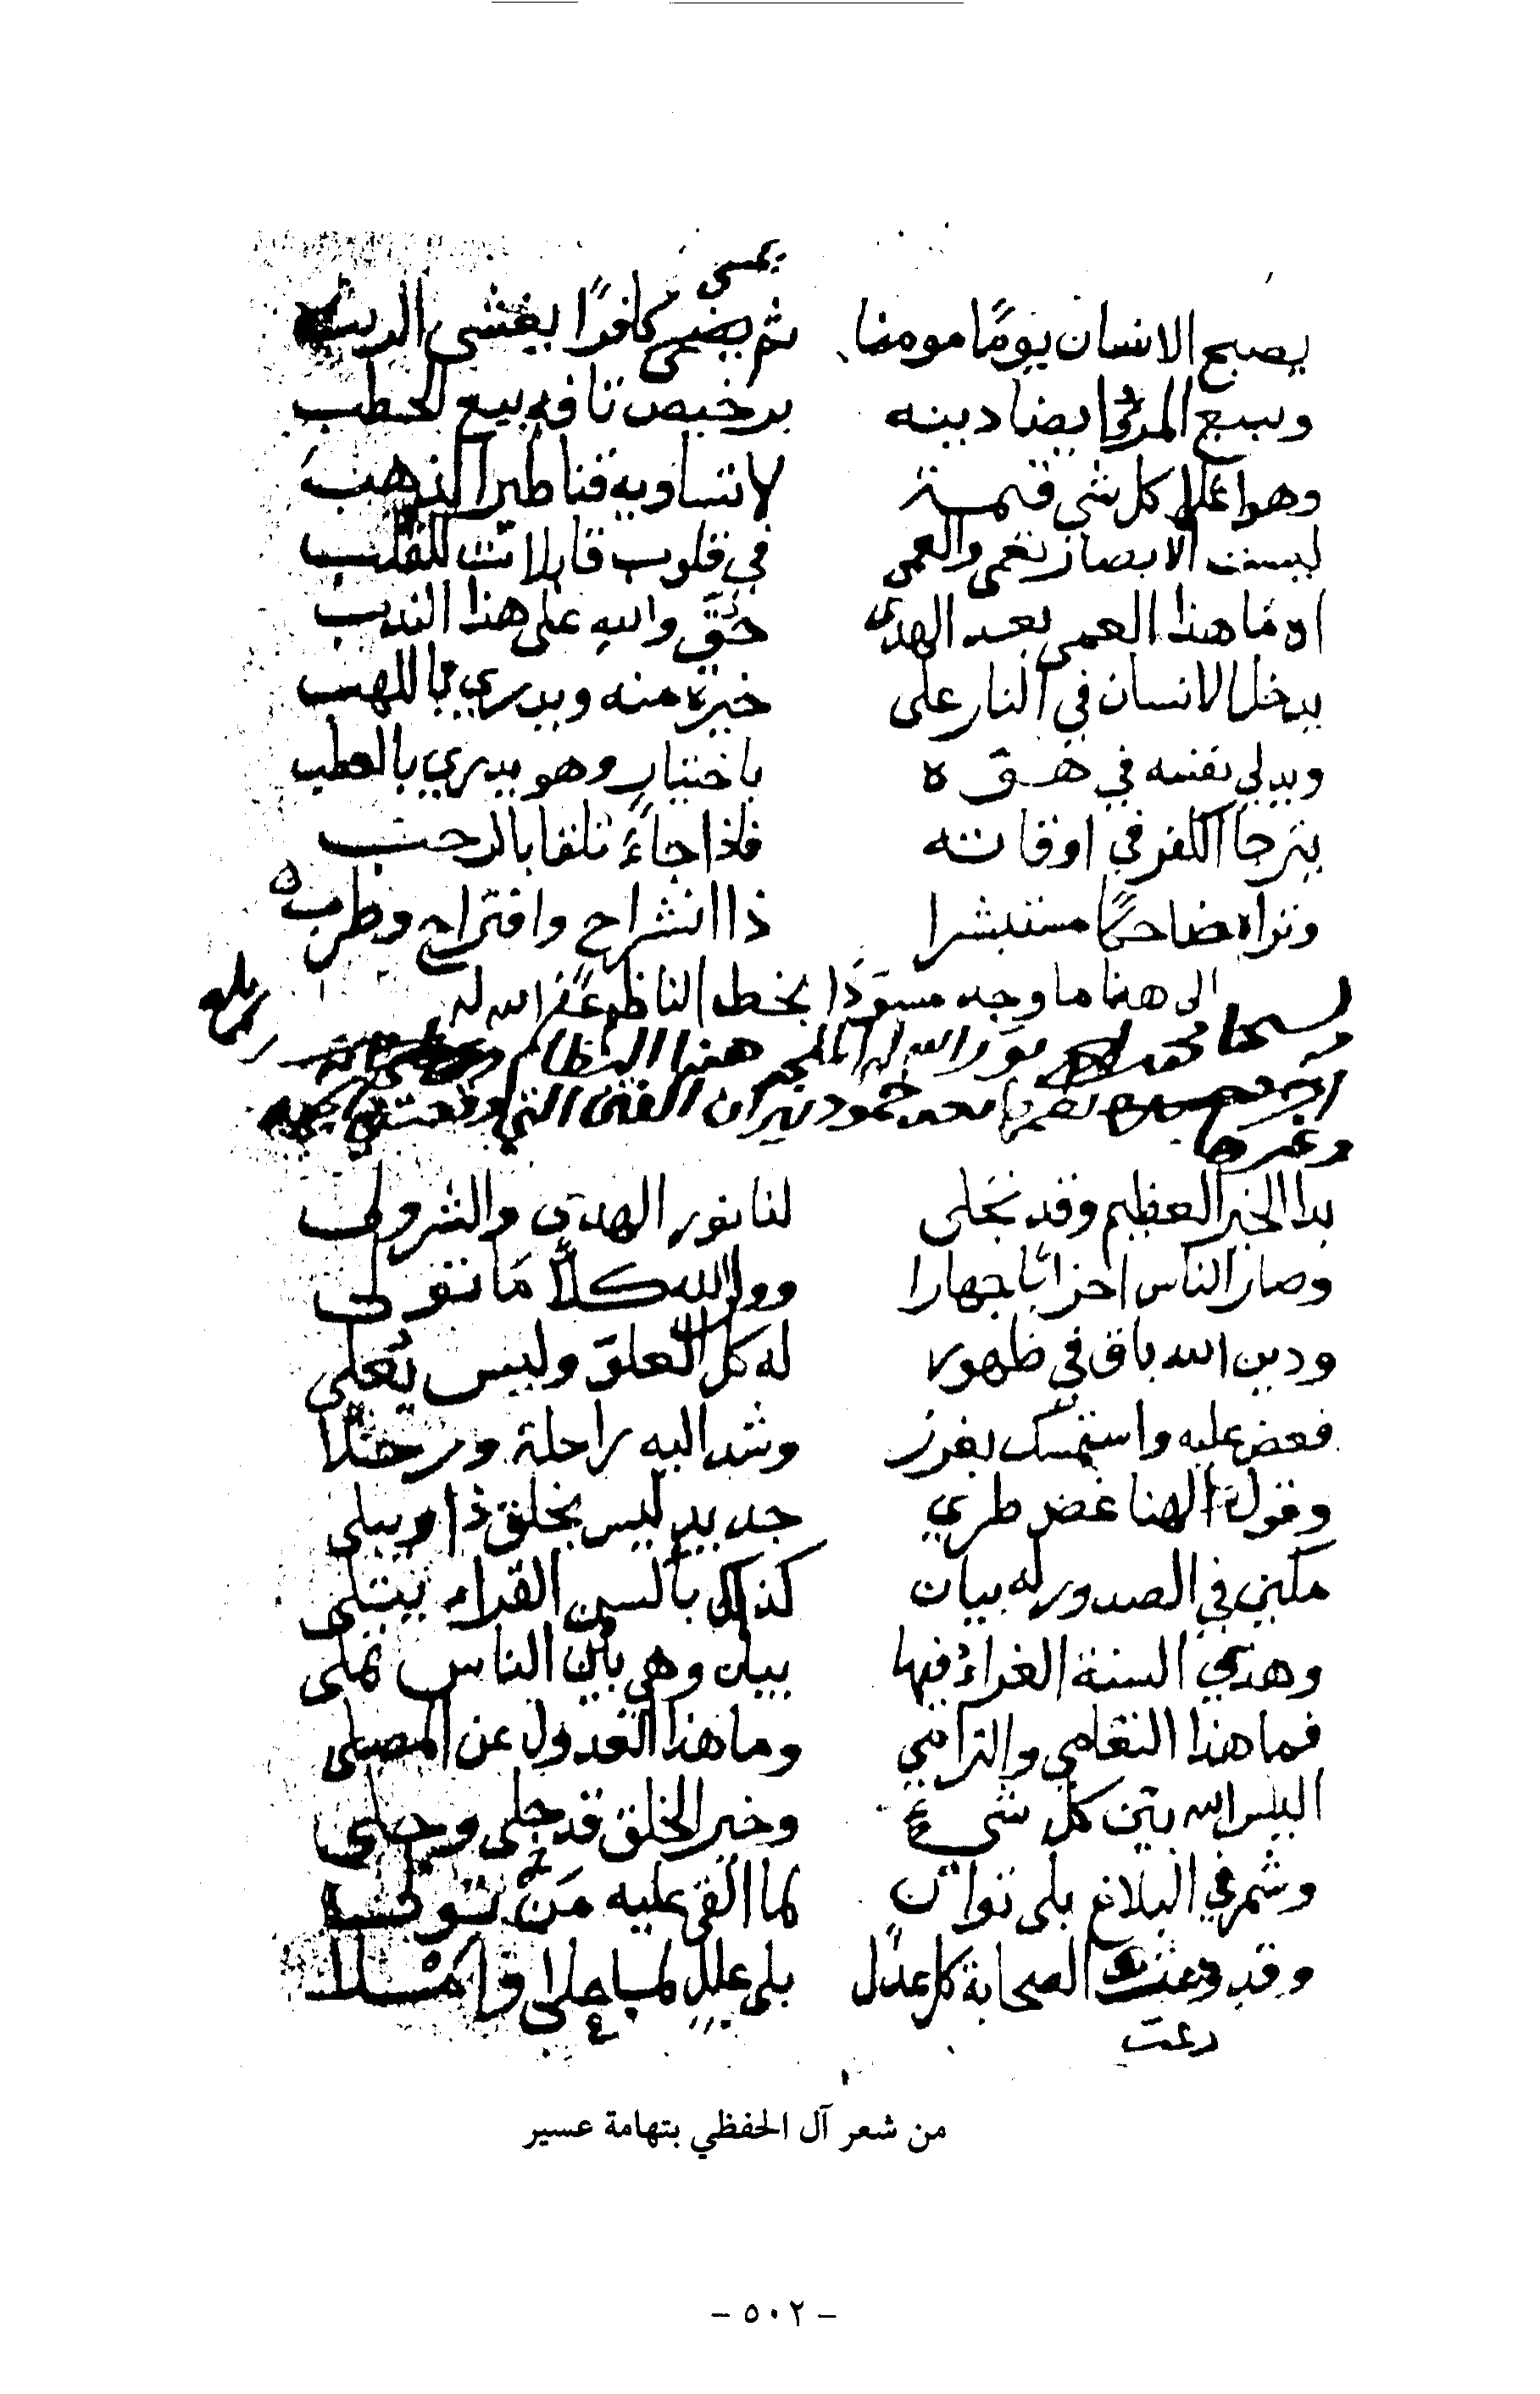 يمسي
يصبح الانسان يومًا مومنا ثم يضحى كافرًا يغشى الريب
وببيع المرءُ ايضا دينه برخيص تافه بيع الحطب
وهو اغلا كل شي قيمة لا تساويه قناطير الذهب
ليست الابصار تعمى والعمى في قلوب قابلات للقلب
اه ما هذا العمى بعد الهدى حُقَّ والله على هذا الندب
يدخل الانسان في النار على خيرة منه ويدري باللهب
ويدلي نفسه في هوّة باختيارٍ وهو يدري بالعطب
يترجا الكفر في اوقاته فاذا جاءَ تلقا بالرحب
وتراه ضاحكًا مستبشرا ذا انشراح وافتراح وطرب ه
الى هنا ما وجد مسوّدًا بخط الناظم غفر الله له
بعد خمود نيران الفتن التي
وغيرها
بدا الخير العظيم وقد تجلى لنا نور الهدى والشر ولى
وصار الناس احزابًا جهارا وولا الله كلًّا مَا تولى
ودين الله باق في ظهور له كل العلوّ وليس يُعلى
فعض عليه واستمسك بغرز وشد اليه راحلة ورحلًا
وقول الهنا غض طري جديد ليس يخلق ذا ويبلى
مكين في الصدور له بيان كذاك بألسن القراء يتلى
وهدي السنة الغراءُ فيها بيان وهي بين الناس تملى
فما هذا التعامي والترامي وما هذا العدول عن المصلى
اليس الله بيّن كل شيء وخير الخلق قد جلى وجلى
وشمر في البلاغ بلى توان لما القى عليه مَنْ تولى
وقد وعت الصحابة كل عدل بلى علل
وعت
من شعر آل الحفظي بتهامة عسير
- ٥٠٢ -